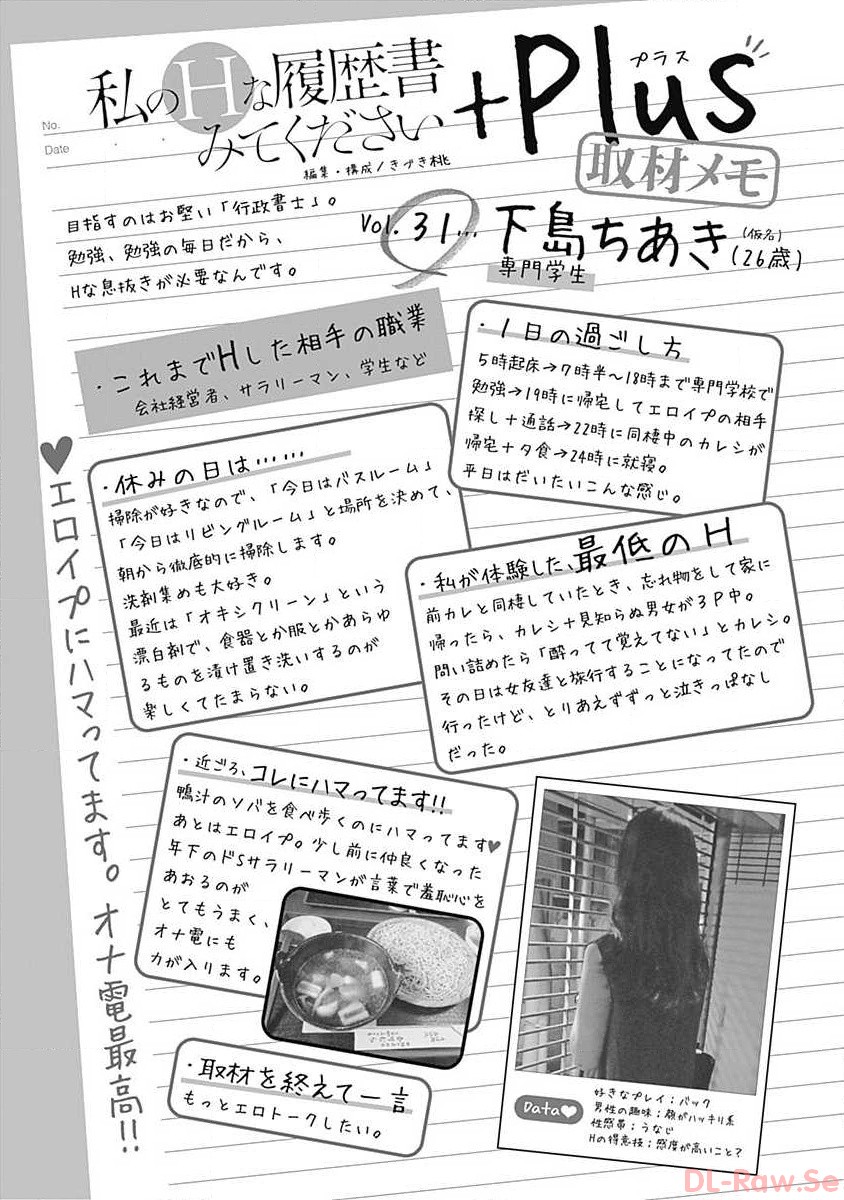 No.
Date
私のHな履歴書
みてください
+Plus
プラス
取材メモ
編集・構成/きづき桃
目指すのはお堅い「行政書士」。
勉強、勉強の毎日だから、
Hな息抜きが必要なんです。
Vol.31…
下島ちあき
(仮名)
(26歳)
専門学生
・これまでHした相手の職業
会社経営者、サラリーマン、学生など
・1日の過ごし方
5時起床→7時半〜18時まで専門学校で
勉強→19時に帰宅してエロイプの相手
探し+通話→22時に同棲中のカレシが
帰宅+夕食→24時に就寝。
平日はだいたいこんな感じ。
♥エロイプにハマってます。オナ電最高!!
・休みの日は……
掃除が好きなので、「今日はバスルーム」
「今日はリビングルーム」と場所を決めて、
朝から徹底的に掃除します。
洗剤集めも大好き。
最近は「オキシクリーン」という
漂白剤で、食器とか服とかあらゆ
るものを漬け置き洗いするのが
楽しくてたまらない。
・私が体験した、最低のH
前カレと同棲していたとき、忘れ物をして家に
帰ったら、カレシ+見知らぬ男女が3P中。
問い詰めたら「酔ってて覚えてない」とカレシ。
その日は女友達と旅行することになってたので
行ったけど、とりあえずずっと泣きっぱなし
だった。
・近ごろ、コレにハマってます!!
鴨汁のソバを食べ歩くのにハマってます♥
あとはエロイプ。少し前に仲良くなった
年下のドSサラリーマンが言葉で羞恥心を
あおるのが
とてもうまく、
オナ電にも
力が入ります。
・取材を終えて一言
もっとエロトークしたい。
Data♥
好きなプレイ:バック
男性の趣味:顔がハッキリ系
性感帯:うなじ
Hの得意技:感度が高いこと?
DL-Raw.Se